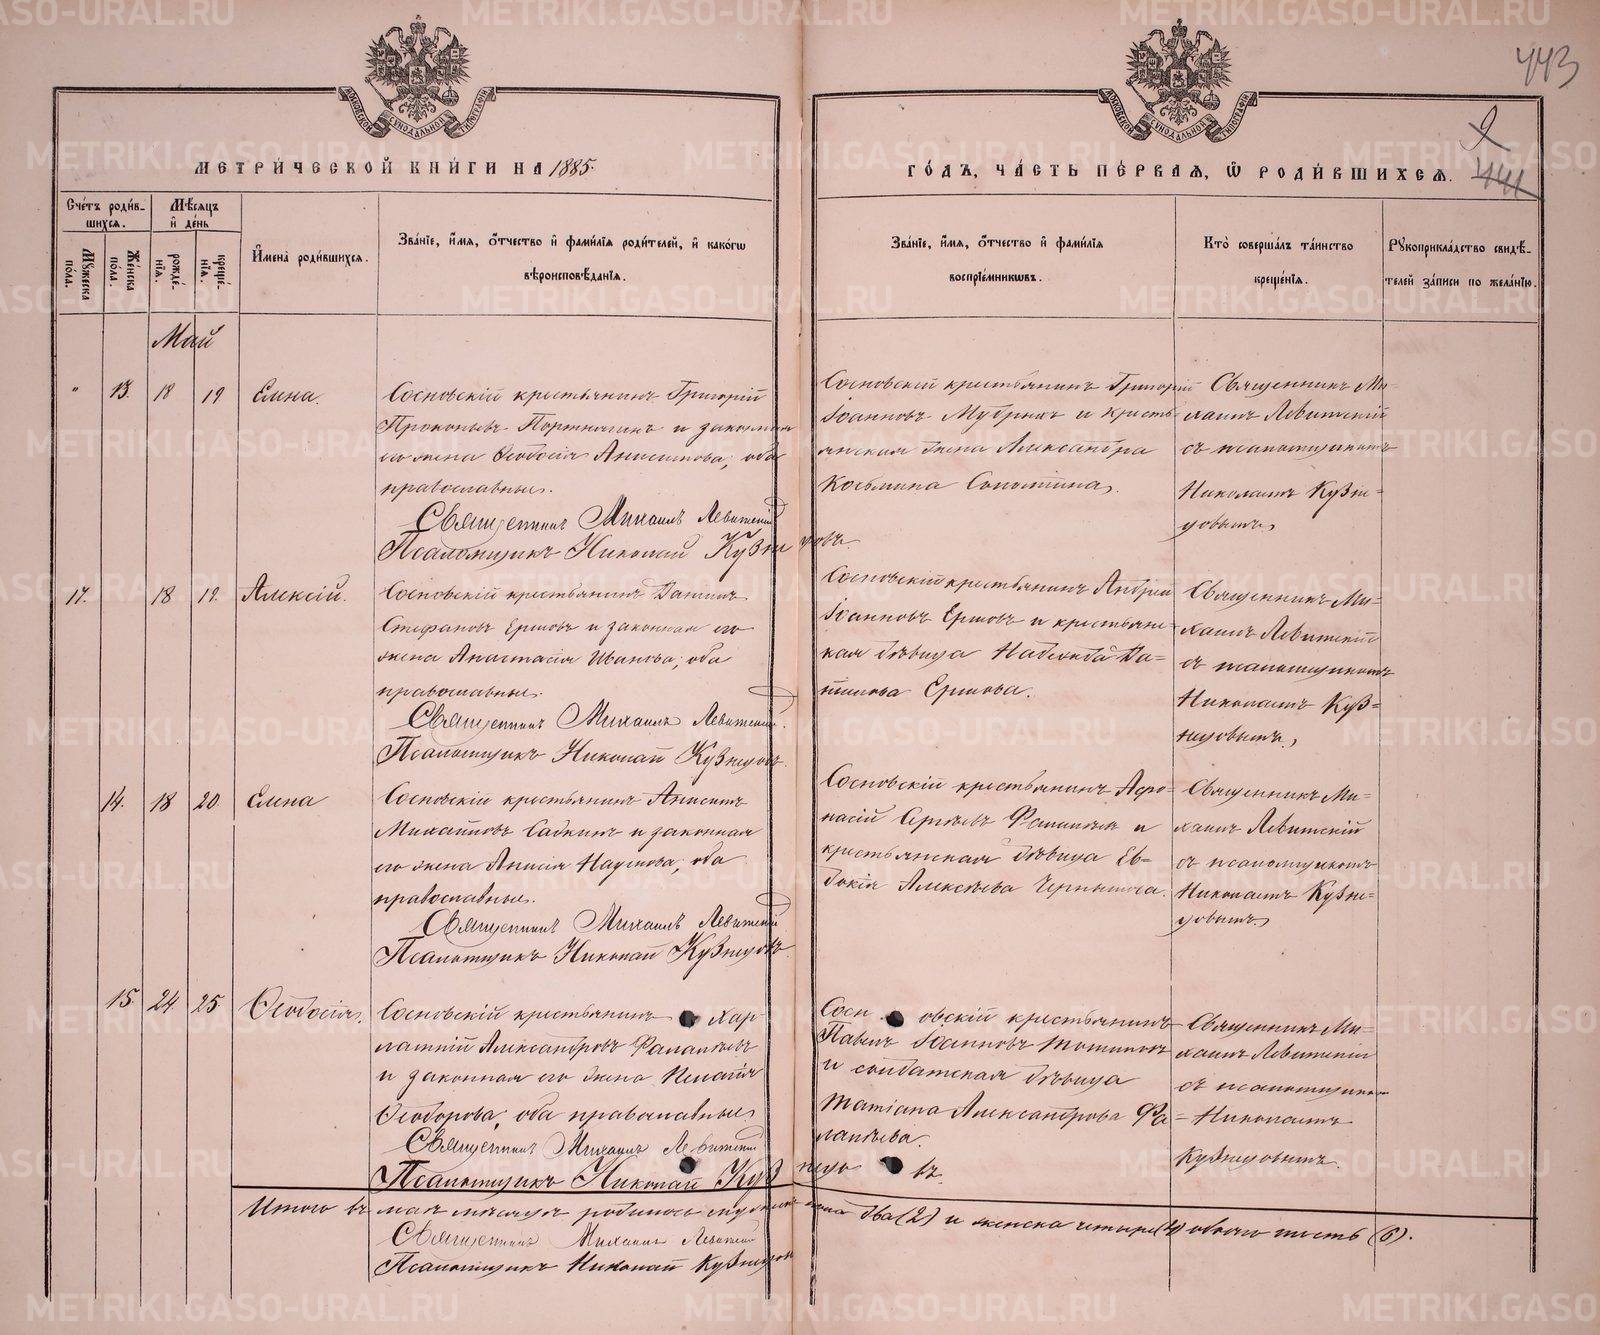 443
9
441
МЕТРИ́ЧЕСКОЙ КНИ́ГИ НА 1885.
ГО́ДЪ, ЧА́СТЬ ПЕ́РВАЯ, Ѡ҆ РОДИ́ВШИХСЯ.
Сче́тъ роди́в-
шихся.
Мѣ́сяцъ
и҆ де́нь
Мꙋ́жеска
по́ла.
Же́нска
по́ла.
рожде́-
нїя.
креще́-
нїя.
И҆мена̀ роди́вшихся.
Зва́нїе, и҆́мя, ѻ҆́тчество и҆ фами́лїя роди́телей, и҆ како́гѡ
вѣроисповѣ́данїя.
Зва́нїе, и҆́мя, ѻ҆́тчество и҆ фами́лїя
воспрїе́мникѡвъ.
Кто̀ соверша́лъ та́инство
креще́нїя.
Рꙋкоприкла́дство свидѣ́-
телей за́писи по жела́нїю.
Май
" 13. 18 19 Елена.
Сосновскій крестьянинъ Григорій
Прокопьевъ и законная
его жена Ѳеодосія Анисимова, оба
православные.
Священникъ Михаилъ Левитскій
Псаломщикъ Николай Кузнецовъ.
Сосновскій крестьянинъ Григорій
Іоанновъ и кресть-
янская жена Александра
Косьмина
Священникъ Ми-
хаилъ Левитскій
съ псаломщикомъ
Николаемъ Кузне-
цовымъ,
17. 18 19. Алексій.
Сосновскій крестьянинъ Даніилъ
Стефановъ Ершовъ и законная его
жена Анастасія Иванова, оба
православные.
Священникъ Михаилъ Левитскій.
Псаломщикъ Николай Кузнецовъ.
Сосновскій крестьянинъ Андрей
Іоанновъ Ершовъ и крестьянс-
кая дѣвица Надежда Да-
ніилова Ершова.
Священникъ Ми-
хаилъ Левитскій
съ псаломщикомъ
Николаемъ Куз-
нецовымъ,
14. 18 20 Елена
Сосновскій крестьянинъ Анисимъ
Михайловъ Садкинъ и законная
его жена Анисія Наумова, оба
православные.
Священникъ Михаилъ Левитскій
Псаломщикъ Николай Кузнецовъ.
Сосновскій крестьянинъ Аѳа-
насій Сергѣевъ и
крестьянская дѣвица Ев-
докія Алексѣева Чернышова.
Священникъ Ми-
хаилъ Левитскій
съ псаломщикомъ
Николаемъ Кузне-
цовымъ
15. 24. 25. Ѳеодосія.
Сосновскій крестьянинъ Хар-
лампій Александровъ Фалалѣевъ
и законная его жена Пелагія
Ѳеодорова, оба православные
Священникъ Михаилъ Левитскій
Псаломщикъ Николай Кузнецовъ.
Сосновскій крестьянинъ
Павелъ Іоанновъ
и солдатская дѣвица
Татіана Александрова Фа-
лалѣева.
Священникъ Ми-
хаилъ Левитскій
съ псаломщикомъ
Николаемъ
Кузнецовымъ.
Итого въ маѣ мѣсяцѣ родилось мужска пола два (2) и женска четыре (4) обоего шесть (6).
Священникъ Михаилъ Левитскій
Псаломщикъ Николай Кузнецовъ
METRIKI.GASO-URAL.RU